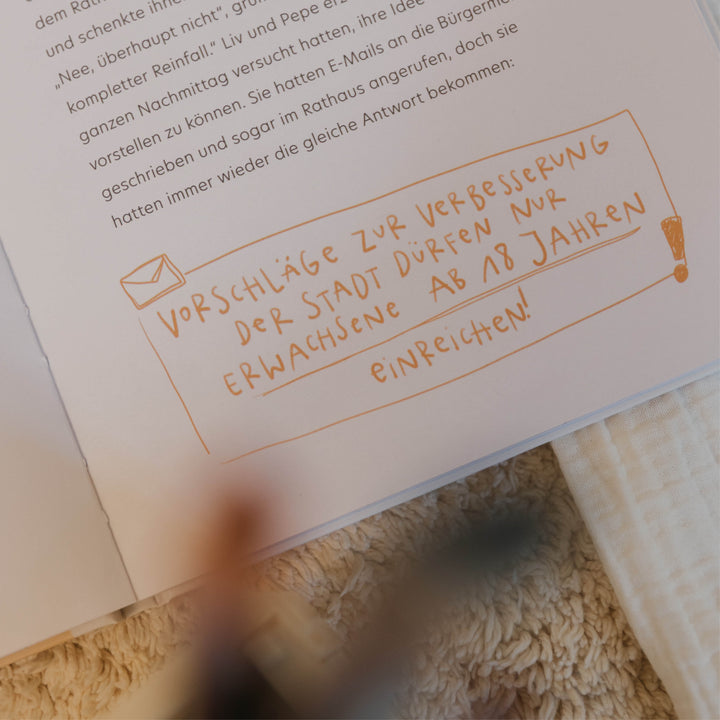 dem
und schenkte ihne
„Nee, überhaupt nicht“,
kompletter Reinfall.“ Liv und Pepe
ganzen Nachmittag versucht hatten, ihre Idee
vorstellen zu können. Sie hatten E-Mails an die Bürgerme
geschrieben und sogar im Rathaus angerufen, doch sie
hatten immer wieder die gleiche Antwort bekommen:
VORSCHLÄGE ZUR VERBESSERUNG
DER STADT DÜRFEN NUR
ERWACHSENE AB 18 JAHREN
EINREICHEN!